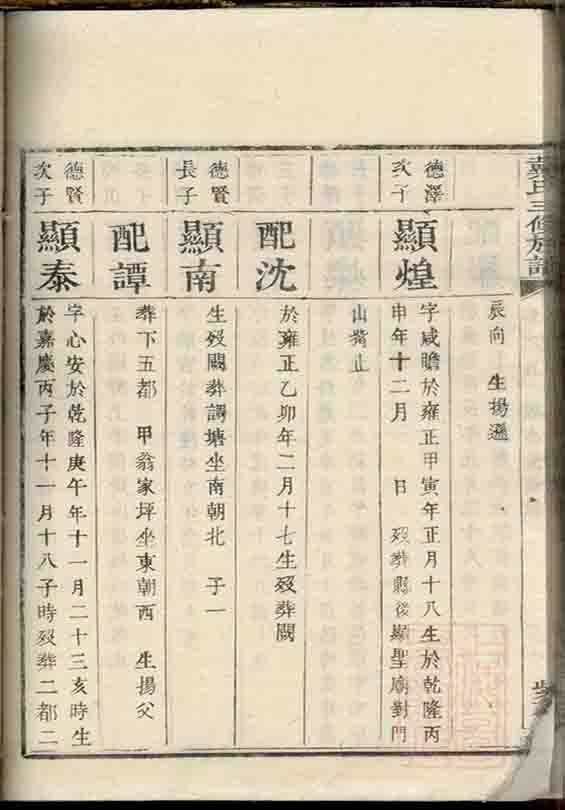 氏三修族譜
辰向 生揚遜
德澤
次子
顯煌
字咸瞻於雍正甲寅年正月十八生於乾隆丙
申年十二月 日 歿葬縣後顯聖廟對門
山嘴止
配沈
於雍正乙卯年二月十七生歿葬闕
德賢
長子
顯南
生歿闕葬調塘坐南朝北 子一
配譚
葬下五都 甲翁家坪坐東朝西 生揚父
德賢
次子
顯泰
字心安於乾隆庚午年十一月二十三亥時生
於嘉慶丙子年十一月十八子時歿葬二都二